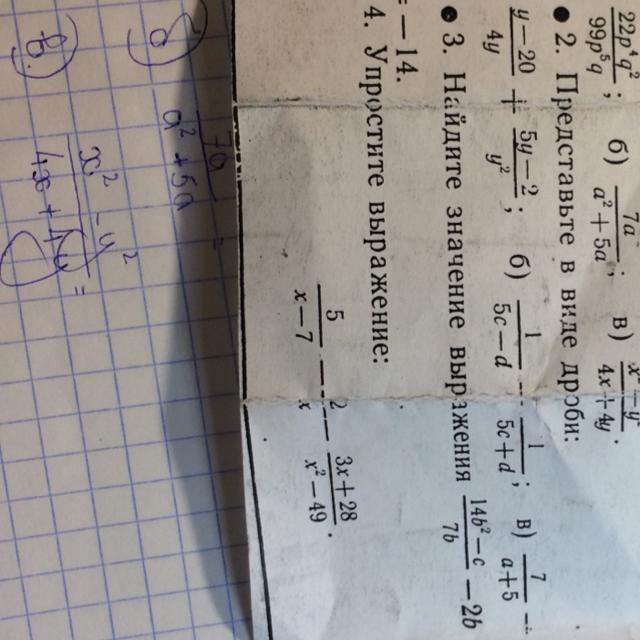 22p⁴q² / 99p⁵q; б) 7a / a² + 5a; в) x² − y² / 4x + 4y.
2. Представьте в виде дроби:
y − 20 / 4y + 5y − 2 / y²; б) 1 / 5c − d − 1 / 5c + d; в) 7 / a + 5 −
3. Найдите значение выражения 14b² − c / 7b − 2b
= −14.
4. Упростите выражение:
5 / x − 7 − 2 / x − 3x + 28 / x² − 49.
б) 7a / a² + 5a =
в) x² − y² / 4x + 4y =